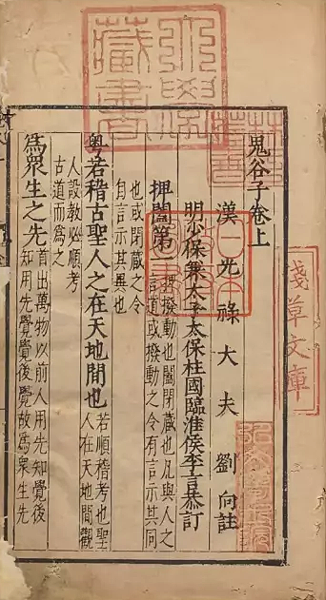 鬼谷子卷上
漢光祿大夫劉向註
明少保兼太子太保柱國臨淮侯李言恭訂
捭闔第
捭撥動也闔閉藏也凡與人之
言道或撥動之令有言示其同
也或閉藏之令
自言示其異也
粵若稽古聖人之在天地間也
若順稽考也聖
人在天地間觀
人設教必順考
古道而爲之
爲衆生之先
首出萬物以前人用先知覺後
知用先覺覺後覺故爲衆生先
淺草文庫
藏書